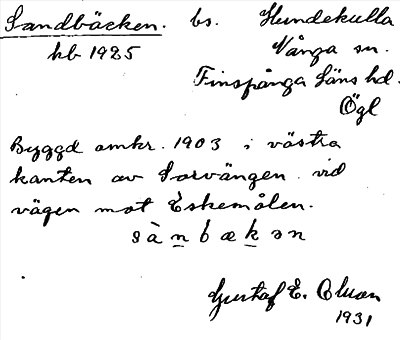 Sandbäcken. bs. Hundekulla
hb 1925 Vånga sn.
Finspånga läns hd.
Ögl
Byggd omkr. 1903 i västra
kanten av Torvängen vid
vägen mot Eskemålen.
sànbækən
Gustaf E. Olson
1931